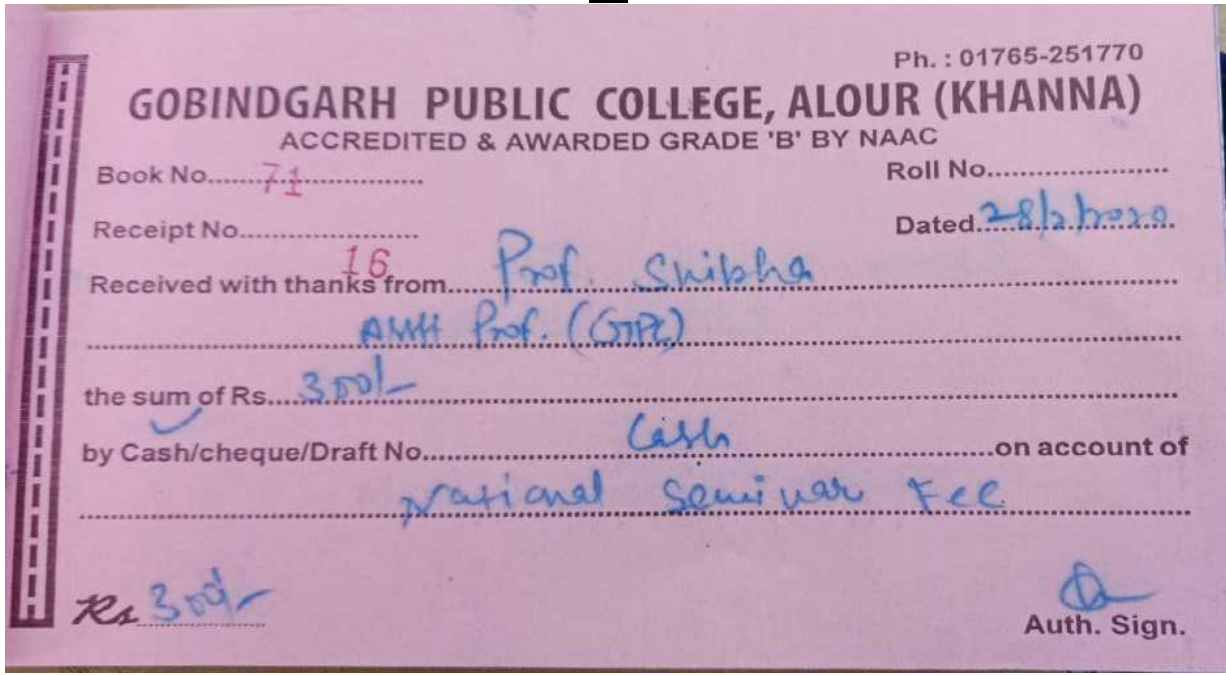 Ph. : 01765-251770
GOBINDGARH PUBLIC COLLEGE, ALOUR (KHANNA)
ACCREDITED & AWARDED GRADE 'B' BY NAAC
Book No.......71................ Roll No......................
Receipt No...................... Dated.28/2/2020
16
Received with thanks from.....Prof. Shibha
Prof. (GPC)
the sum of Rs....300/-
by Cash/cheque/Draft No..........Cash..........on account of
National Seminar Fee
Rs 300/-
Auth. Sign.